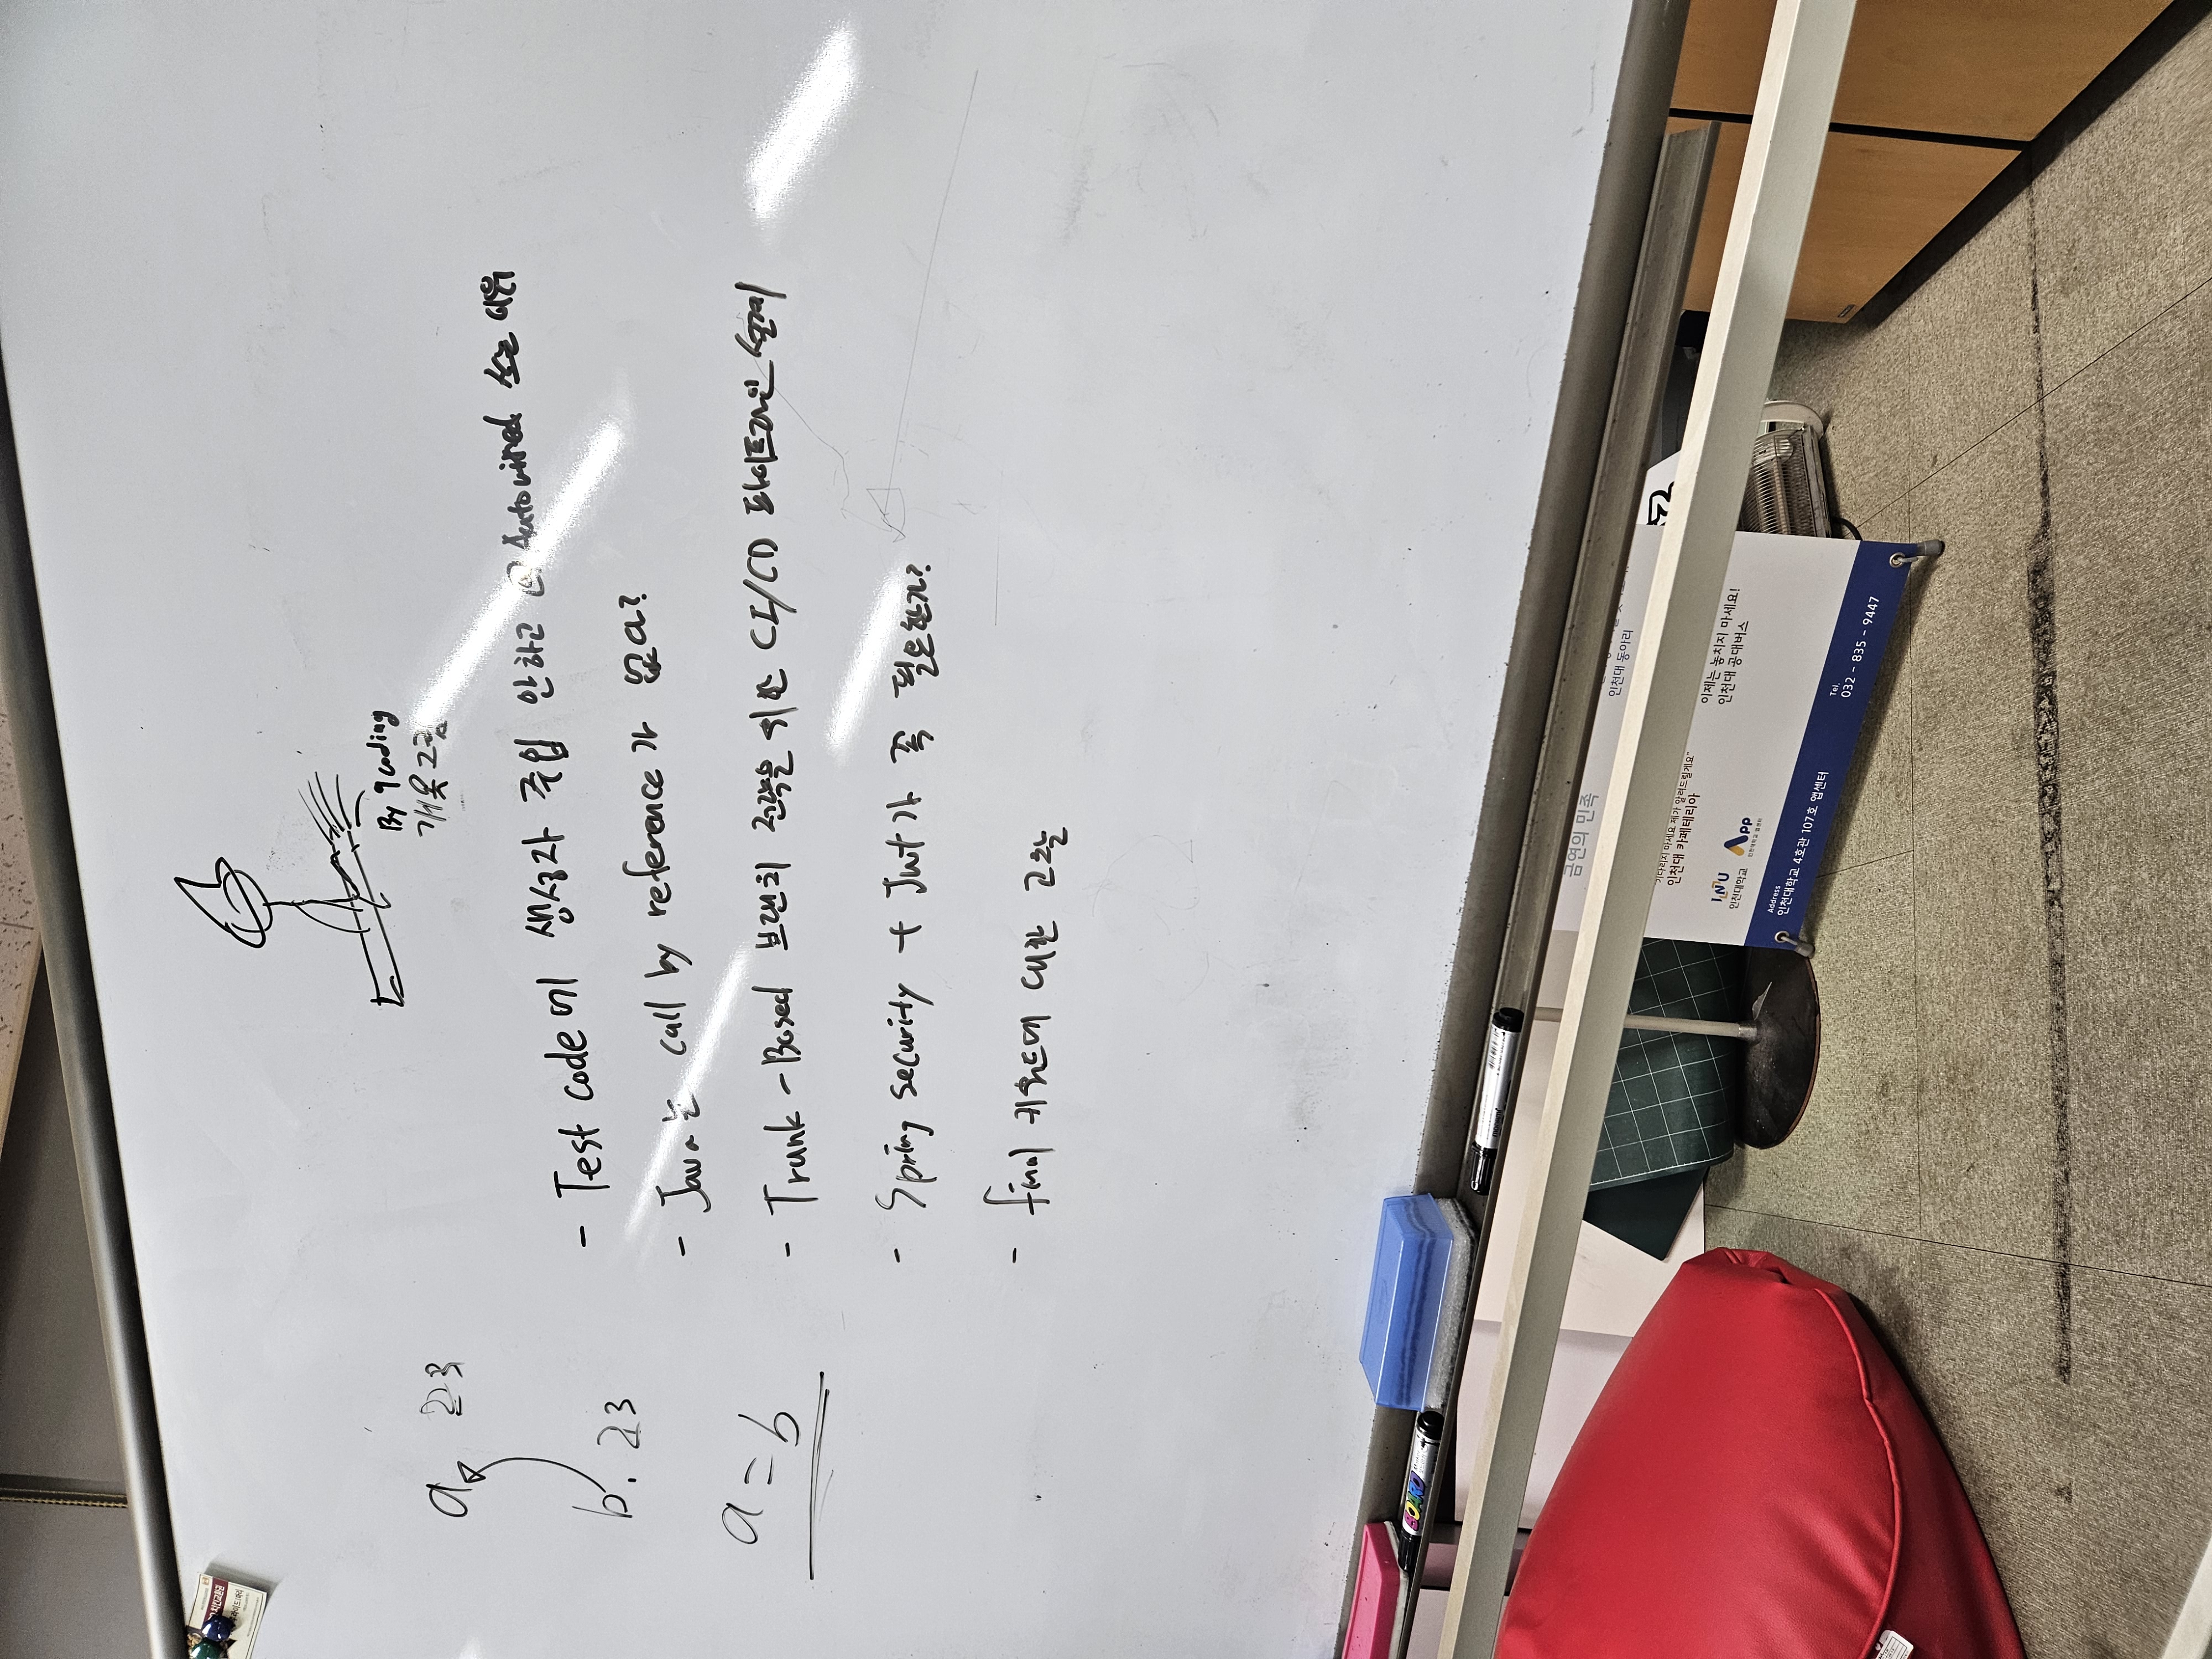 By 9coding
개못그림
a 23
b. 23
a = b
- Test code에 생성자 주입 안하고 @Autowired 쓰는 이유
- Java는 call by reference가 없다?
- Trunk-Based 브랜치 전략을 위한 CI/CD 파이프라인 설계
- Spring security + Jwt가 꼭 필요한가?
- final 키워드에 대한 고찰
BOARD
monami
금연의 민족
인천대 동아리
기다리지 마세요 제가 알려드릴게요"
인천대 카페테리아
이제는 놓치지 마세요!
인천대 공대버스
INU
인천대학교
App
인천대학교 앱센터
Address
인천대학교 4호관 107호 앱센터
Tel.
032 - 835 - 9447